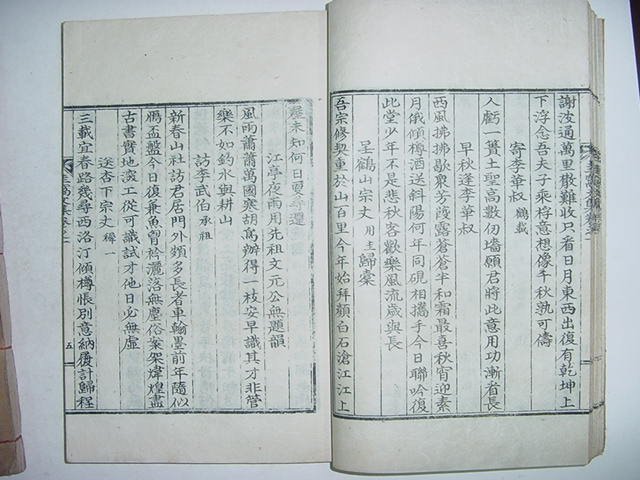 謝波通萬里難收只看日月東西出復有乾坤上
下浮念吾夫子乘桴意想像千秋孰可儔
寄李華叔 鶴載
人虧一簣土聖高數仞墻願君將此意用功漸者長
早秋逢李華叔
西風拂拂歇衆芳葭露蒼蒼半和霜最喜秋宵迎素
月俄傾樽酒送斜陽何年同硯相攜手今日聯吟復
此堂少年不是悲秋客數樂風流歲與長
呈鶴山宗丈 用圭 歸橐
吾宗修契重於山百里今年始拜顔白石滄江江上
屋未知何日更尋還
江亭夜雨用先祖文元公無題韻
風雨蕭蕭萬國寒胡爲辦得一枝安早識其才非管
樂不如釣水與耕山
訪李武伯 承祖
新春山社訪君居門外頗多長者車翰墨前年隨似
鴈盃盤今日復兼魚曾衿灑落無塵俗案架煒煌盡
古書實地工從可識試才他日必無虛
送杏下宗丈 稺一
三載宜春路幾尋西洛汀傾樽悵別意納履計歸程
五